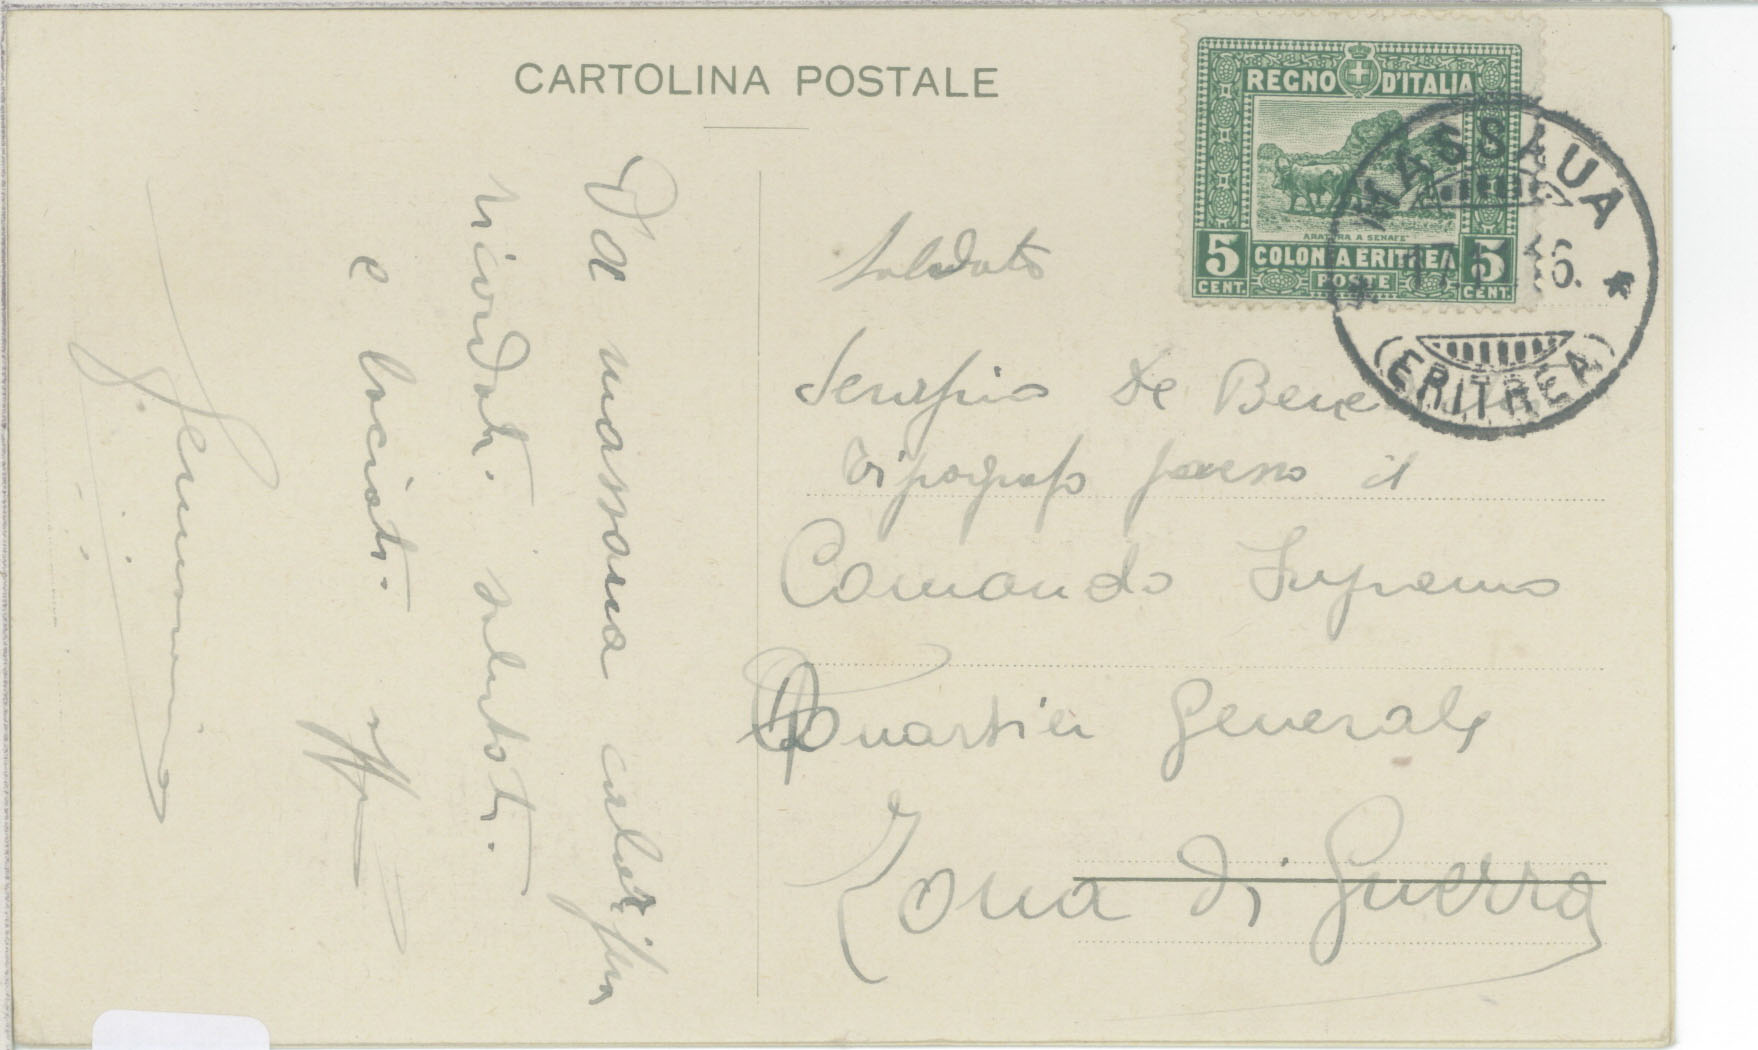 CARTOLINA POSTALE
REGNO D'ITALIA
ARATURA A SENAFE'
5 COLONIA ERITREA 5
CENT. POSTE CENT.
MASSAUA
17. 36.
(ERITREA)
Da massaua
ricordati saluti
e baciati
Soldato
Serafino De Bene
Tipografo presso il
Comando Supremo
Quartier Generale
Zona di Guerra